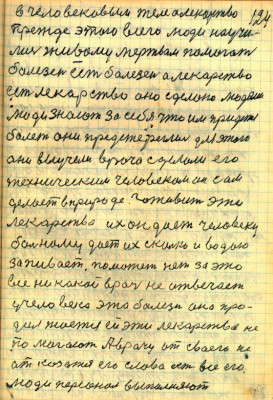 в человековым тем алекарство 124
прежде этого всего люди научи-
лись живому мертвом помогать
болезн есть болезн а лекарство
есть лекарство оно сделано людьми
люди знают за себя что им придет
болет они предстерегли для этого
они выучели врача сделали его
техническим человеком он сам
делает в природе. Готовит эти
лекарства их он дает человеку
больному дает их сколко и водою
запивает, поможет нет за это
все никакой врач не отвечает
у человека эта болезн она про-
должается ей эти лекарства не
помогают А врачу от своего не
отказатся его слова есть все его
люди персонал выполняют